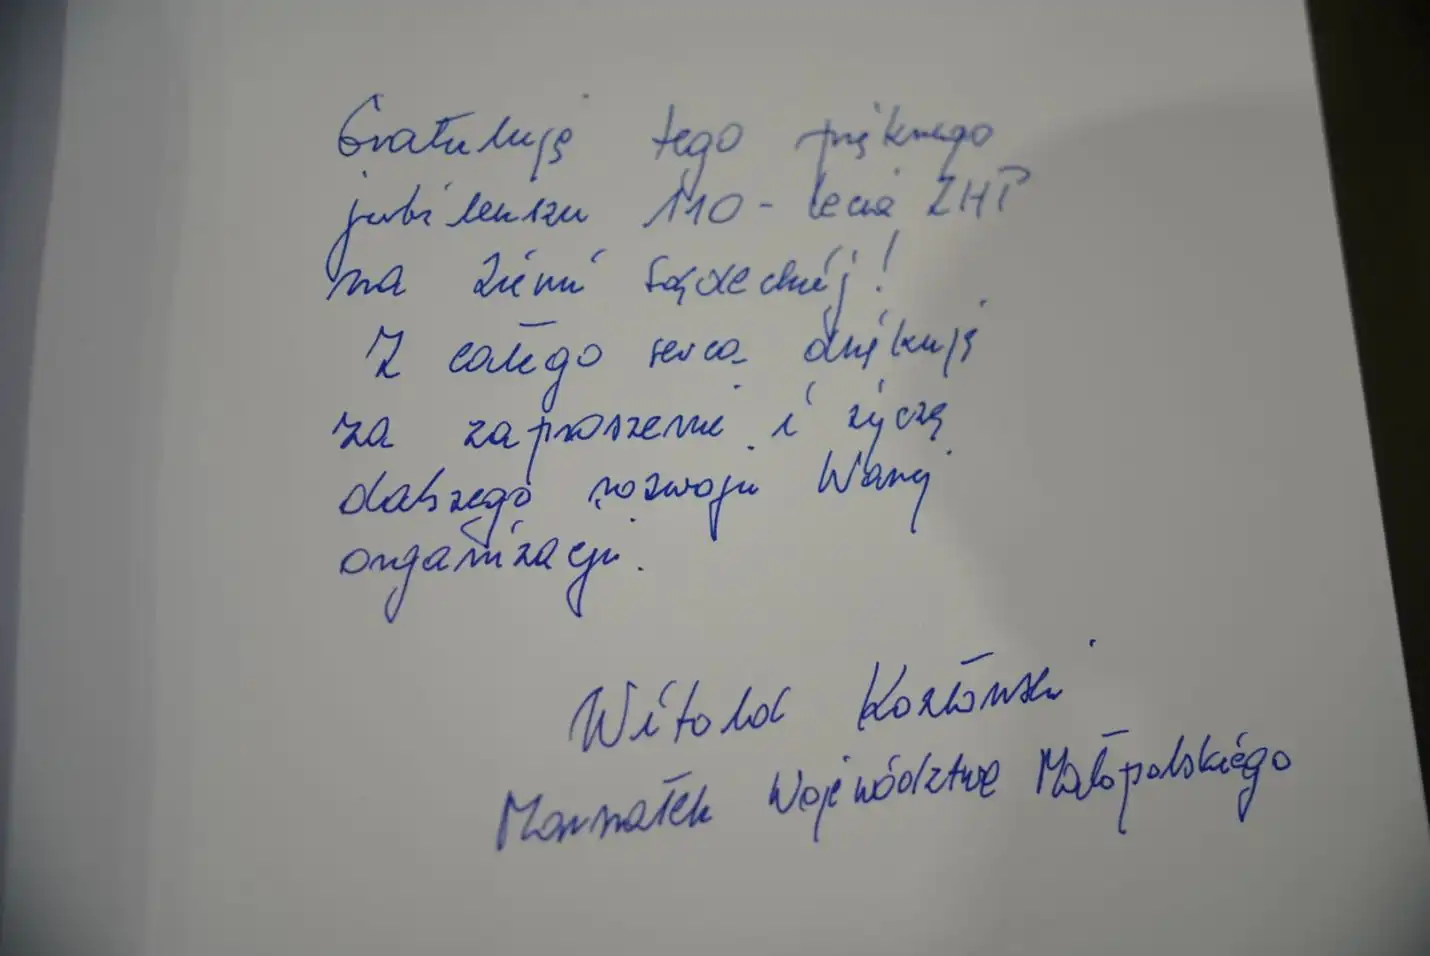 Gratuluję tego pięknego
jubileuszu 110-lecia ZHP
na Ziemi Sądeckiej!
Z całego serca dziękuję
za zaproszenie i życzę
dalszego rozwoju Waszej
organizacji.
Witold Kozłowski
Marszałek Województwa Małopolskiego